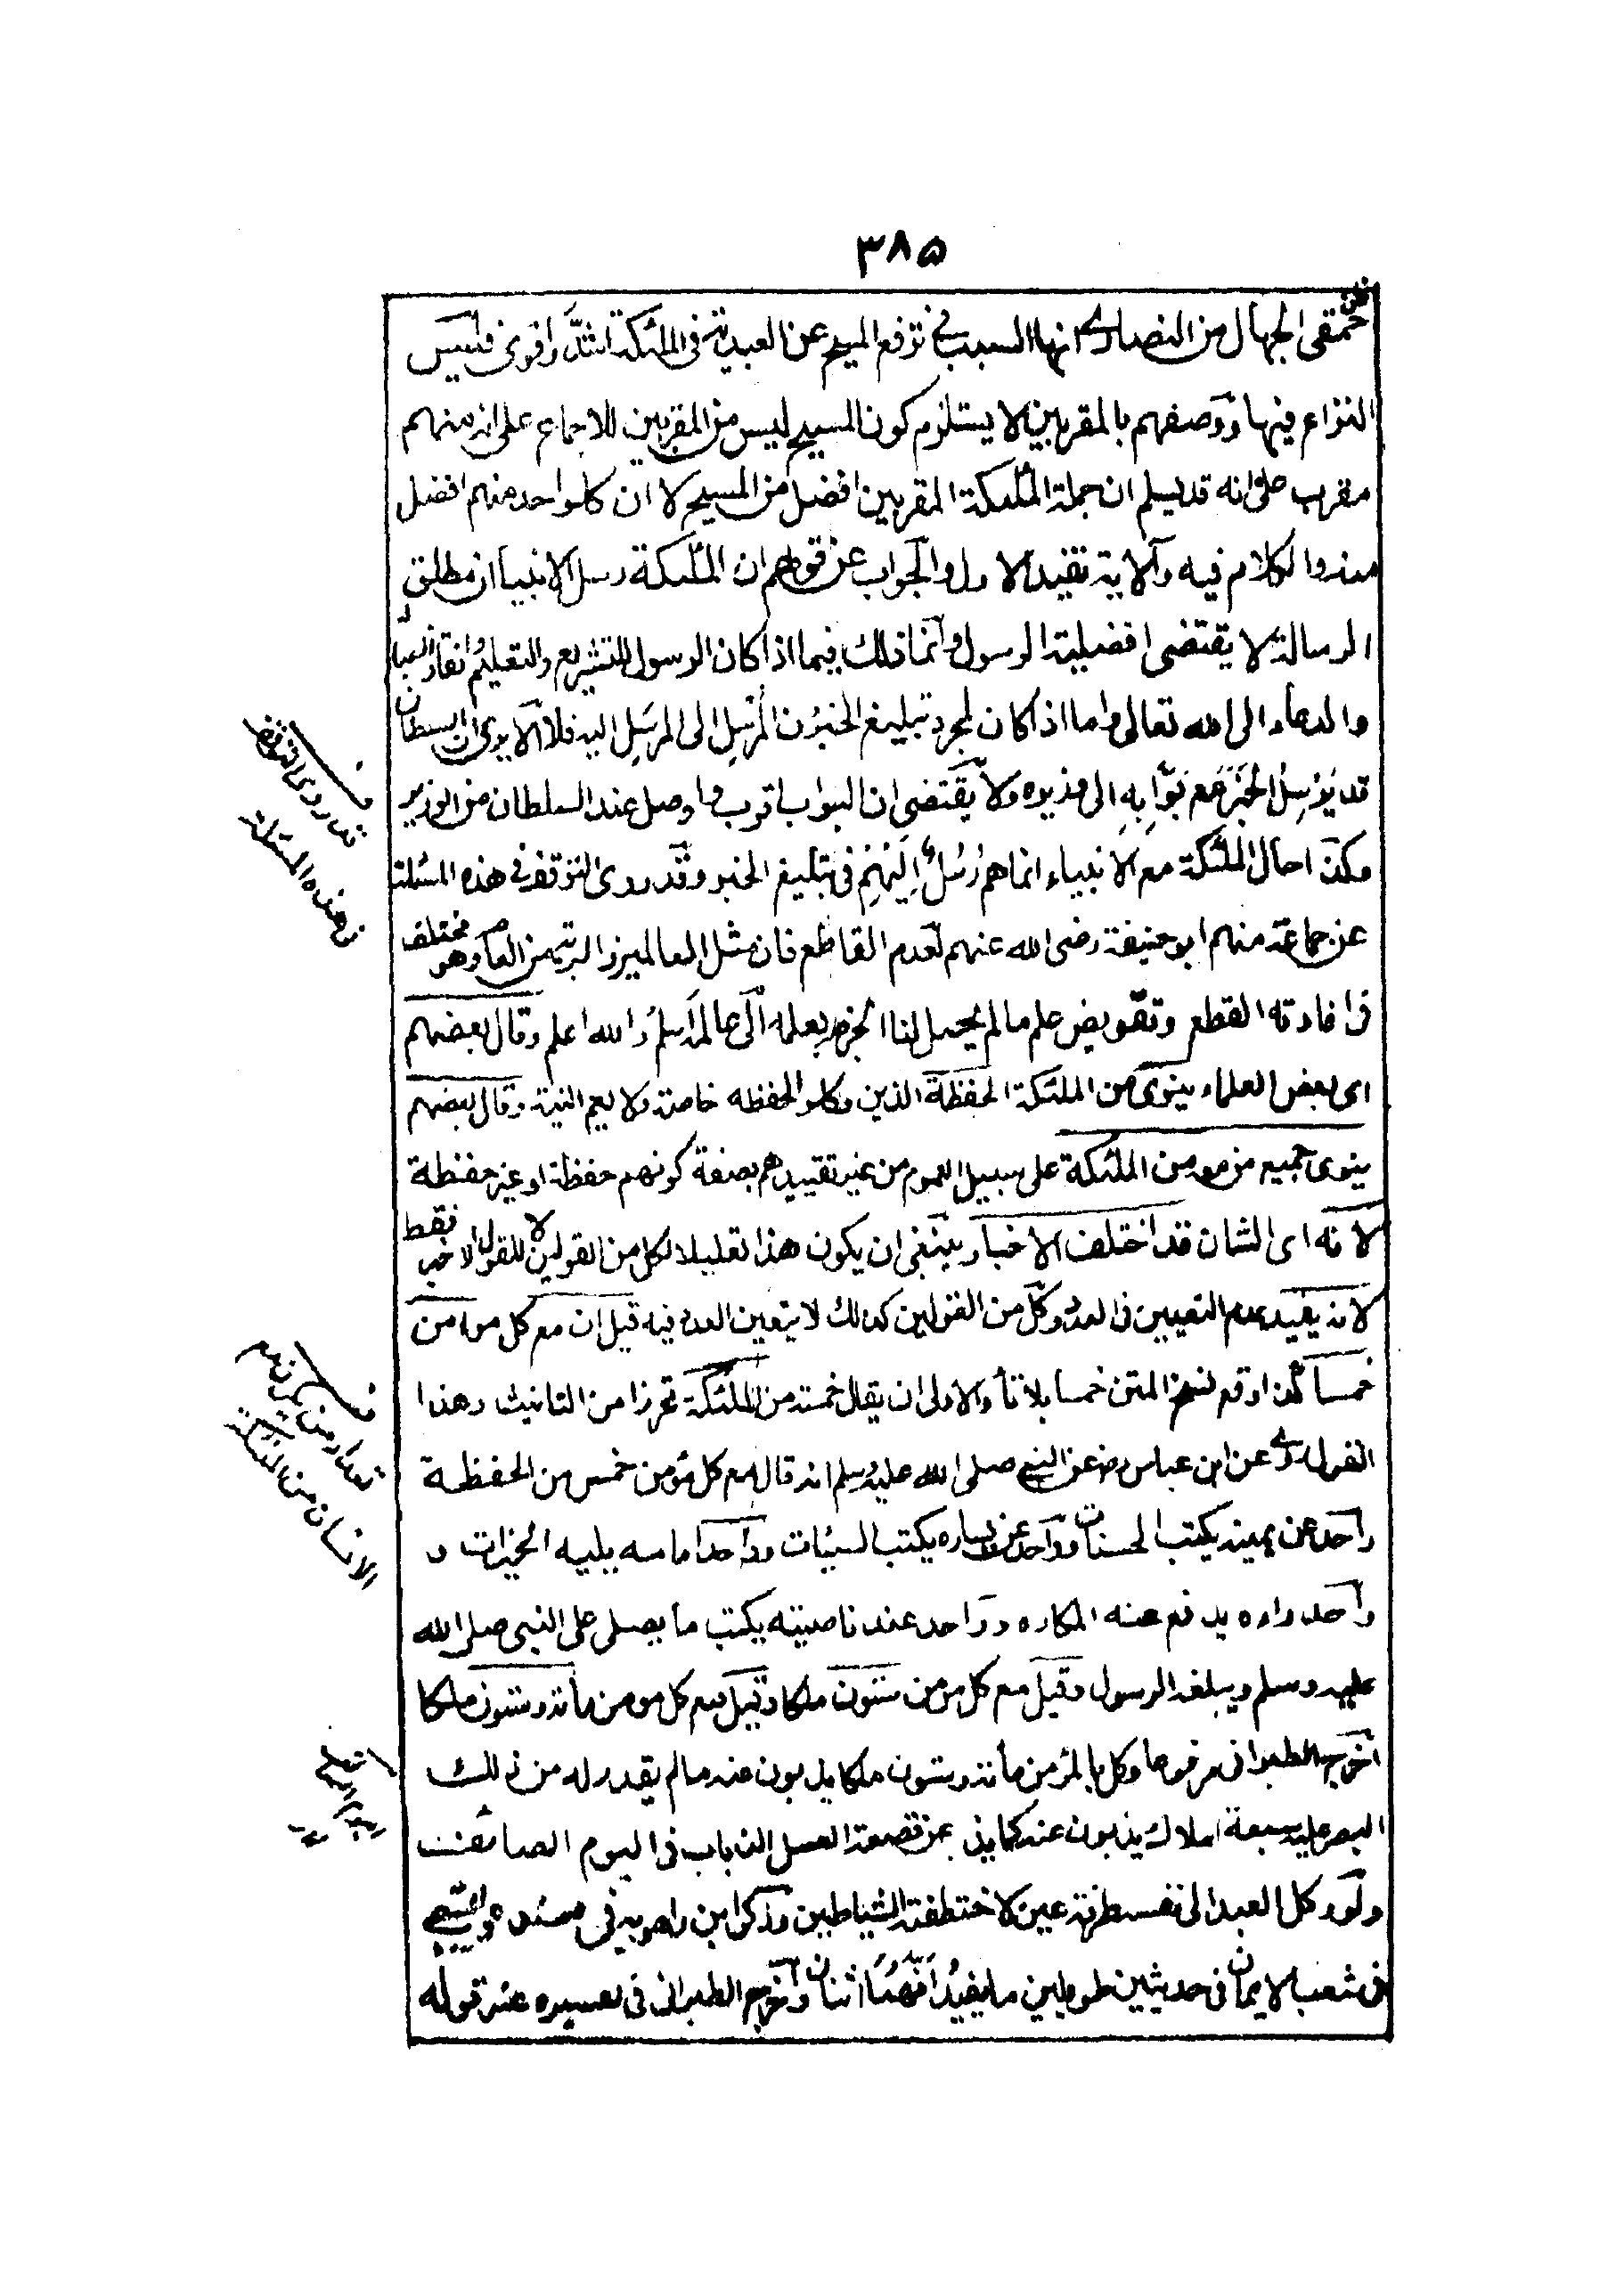 ٣٨٥
حمقى الجهال من النصارى انها السبب فى ترفع المسيح عن العبدية فى الملئكة اشد واقوى فليس
النزاع فيها ووصفهم بالمقربين لا يستلزم كون المسيح ليس من المقربين للاجماع على انه منهم
مقرب على انه قد يسلم ان جملة الملئكة المقربين افضل من المسيح لا ان كل واحد منهم افضل
منه والكلام فيه والآية تفيد الاول والجواب عن قولهم ان الملئكة رسل الانبياء ان مطلق
الرسالة لا يقتضى افضلية الرسول وانما ذلك فيما اذا كان الرسول للتشريع والتعليم
والدعاء الى الله تعالى واما اذا كان لمجرد تبليغ الخبر من المرسل الى المرسل اليه فلا الا يرى ان السلطان
قد يرسل الخبر مع بوابه الى وزيره ولا يقتضى ان البواب اقرب واوصل عند السلطان من الوزير
وكذا حال الملئكة مع الانبياء انما هم رسل اليهم فى تبليغ الخبر وقد روى التوقف فى هذه المسئلة
عن جماعة منهم ابو حنيفة رضى الله عنهم لعدم القاطع فان مثل العالمين والبرية من العام وهو مختلف
فى افادته القطع وتفويض علم ما لم يحصل لنا الجزم بعلمه الى عالم اسلم والله اعلم وقال بعضهم
اى بعض العلماء ينوى من الملئكة الحفظة الذين وكلوا الحفظه خاصة ولا يعم النية وقال بعضهم
ينوى جميع من معه من الملئكة على سبيل العموم من غير تقييدهم بصفة كونهم حفظة او غير حفظة
لانه اى الشان قد اختلف الاخبار ينبغى ان يكون هذا تعليلا لكل من القولين لا للقول الاخير فقط
لانه يفيد عدم التعيين فى العدد وكل من القولين كذلك لا يتعين العدد فيه قيل ان مع كل مومن
خمسا كذا وقع نسخ المتن خمسا بلا تأ والاولى ان يقال خمسة من الملئكة تحرزا من التانيث وهذا
القول روى عن ابن عباس رض عن النبى صلى الله عليه وسلم انه قال مع كل مؤمن خمس من الحفظة
واحد عن يمينه يكتب الحسنات وواحد عن يساره يكتب السيئات وواحد امامه يلبيه الخيرات و
واحد وراءه يدفع عنه المكاره وواحد عند ناصيته يكتب ما يصلى على النبى صلى الله
عليه وسلم ويبلغه الرسول وقيل مع كل مومن ستون ملكا وقيل مع كل مومن مأئة وستون ملكا
اخرجه الطبرانى مرفوعا وكل بالمؤمن مأئة وستون ملكا يذبون عنه ما لم يقدر له من ذلك
البصر عليه سبعة املاك يذبون عنه كما يذب عن قصعة العسل الذباب فى اليوم الصائف
ولو وكل العبد الى نفسه طرفة عين لاختطفته الشياطين وذكر ابن راهويه فى مسنده والبيهقى
فى شعب الايمان فى حديثين طويلين ما يفيد انهما اثنان واخرج الطبرانى فى تفسيره عند قوله
قد روى التوقف
فى هذه المسئلة
الانسان من الملئكة